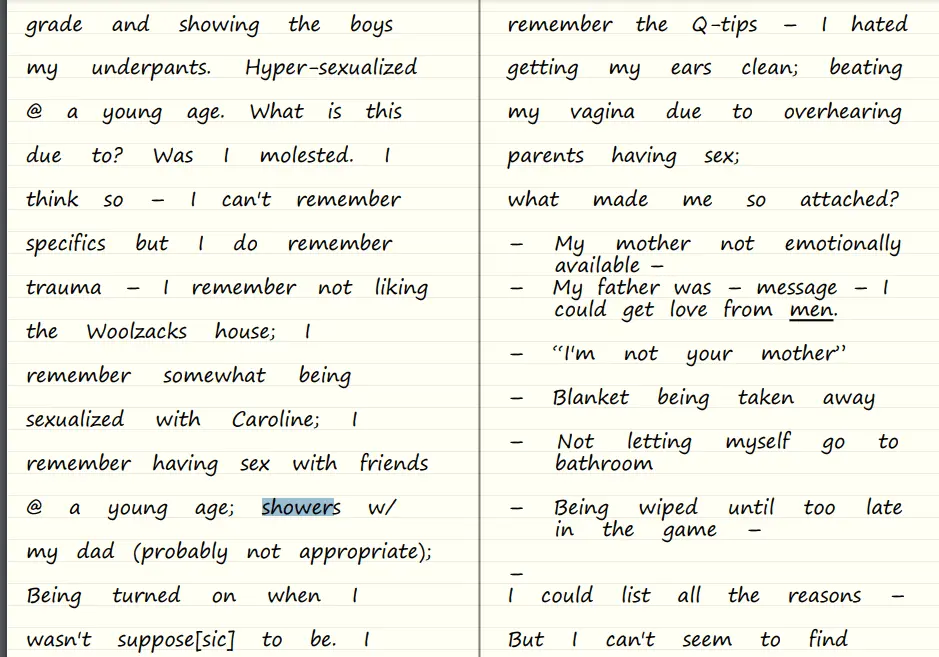 grade and showing the boys
my underpants. Hyper-sexualized
@ a young age. What is this
due to? Was I molested. I
think so – I can't remember
specifics but I do remember
trauma – I remember not liking
the Woolzacks house; I
remember somewhat being
sexualized with Caroline; I
remember having sex with friends
@ a young age; showers w/
my dad (probably not appropriate);
Being turned on when I
wasn't suppose[sic] to be. I
remember the Q-tips – I hated
getting my ears clean; beating
my vagina due to overhearing
parents having sex;
what made me so attached?
– My mother not emotionally
available –
– My father was – message – I
could get love from men.
– “I'm not your mother”
– Blanket being taken away
– Not letting myself go to
bathroom
– Being wiped until too late
in the game –
–
I could list all the reasons –
But I can't seem to find